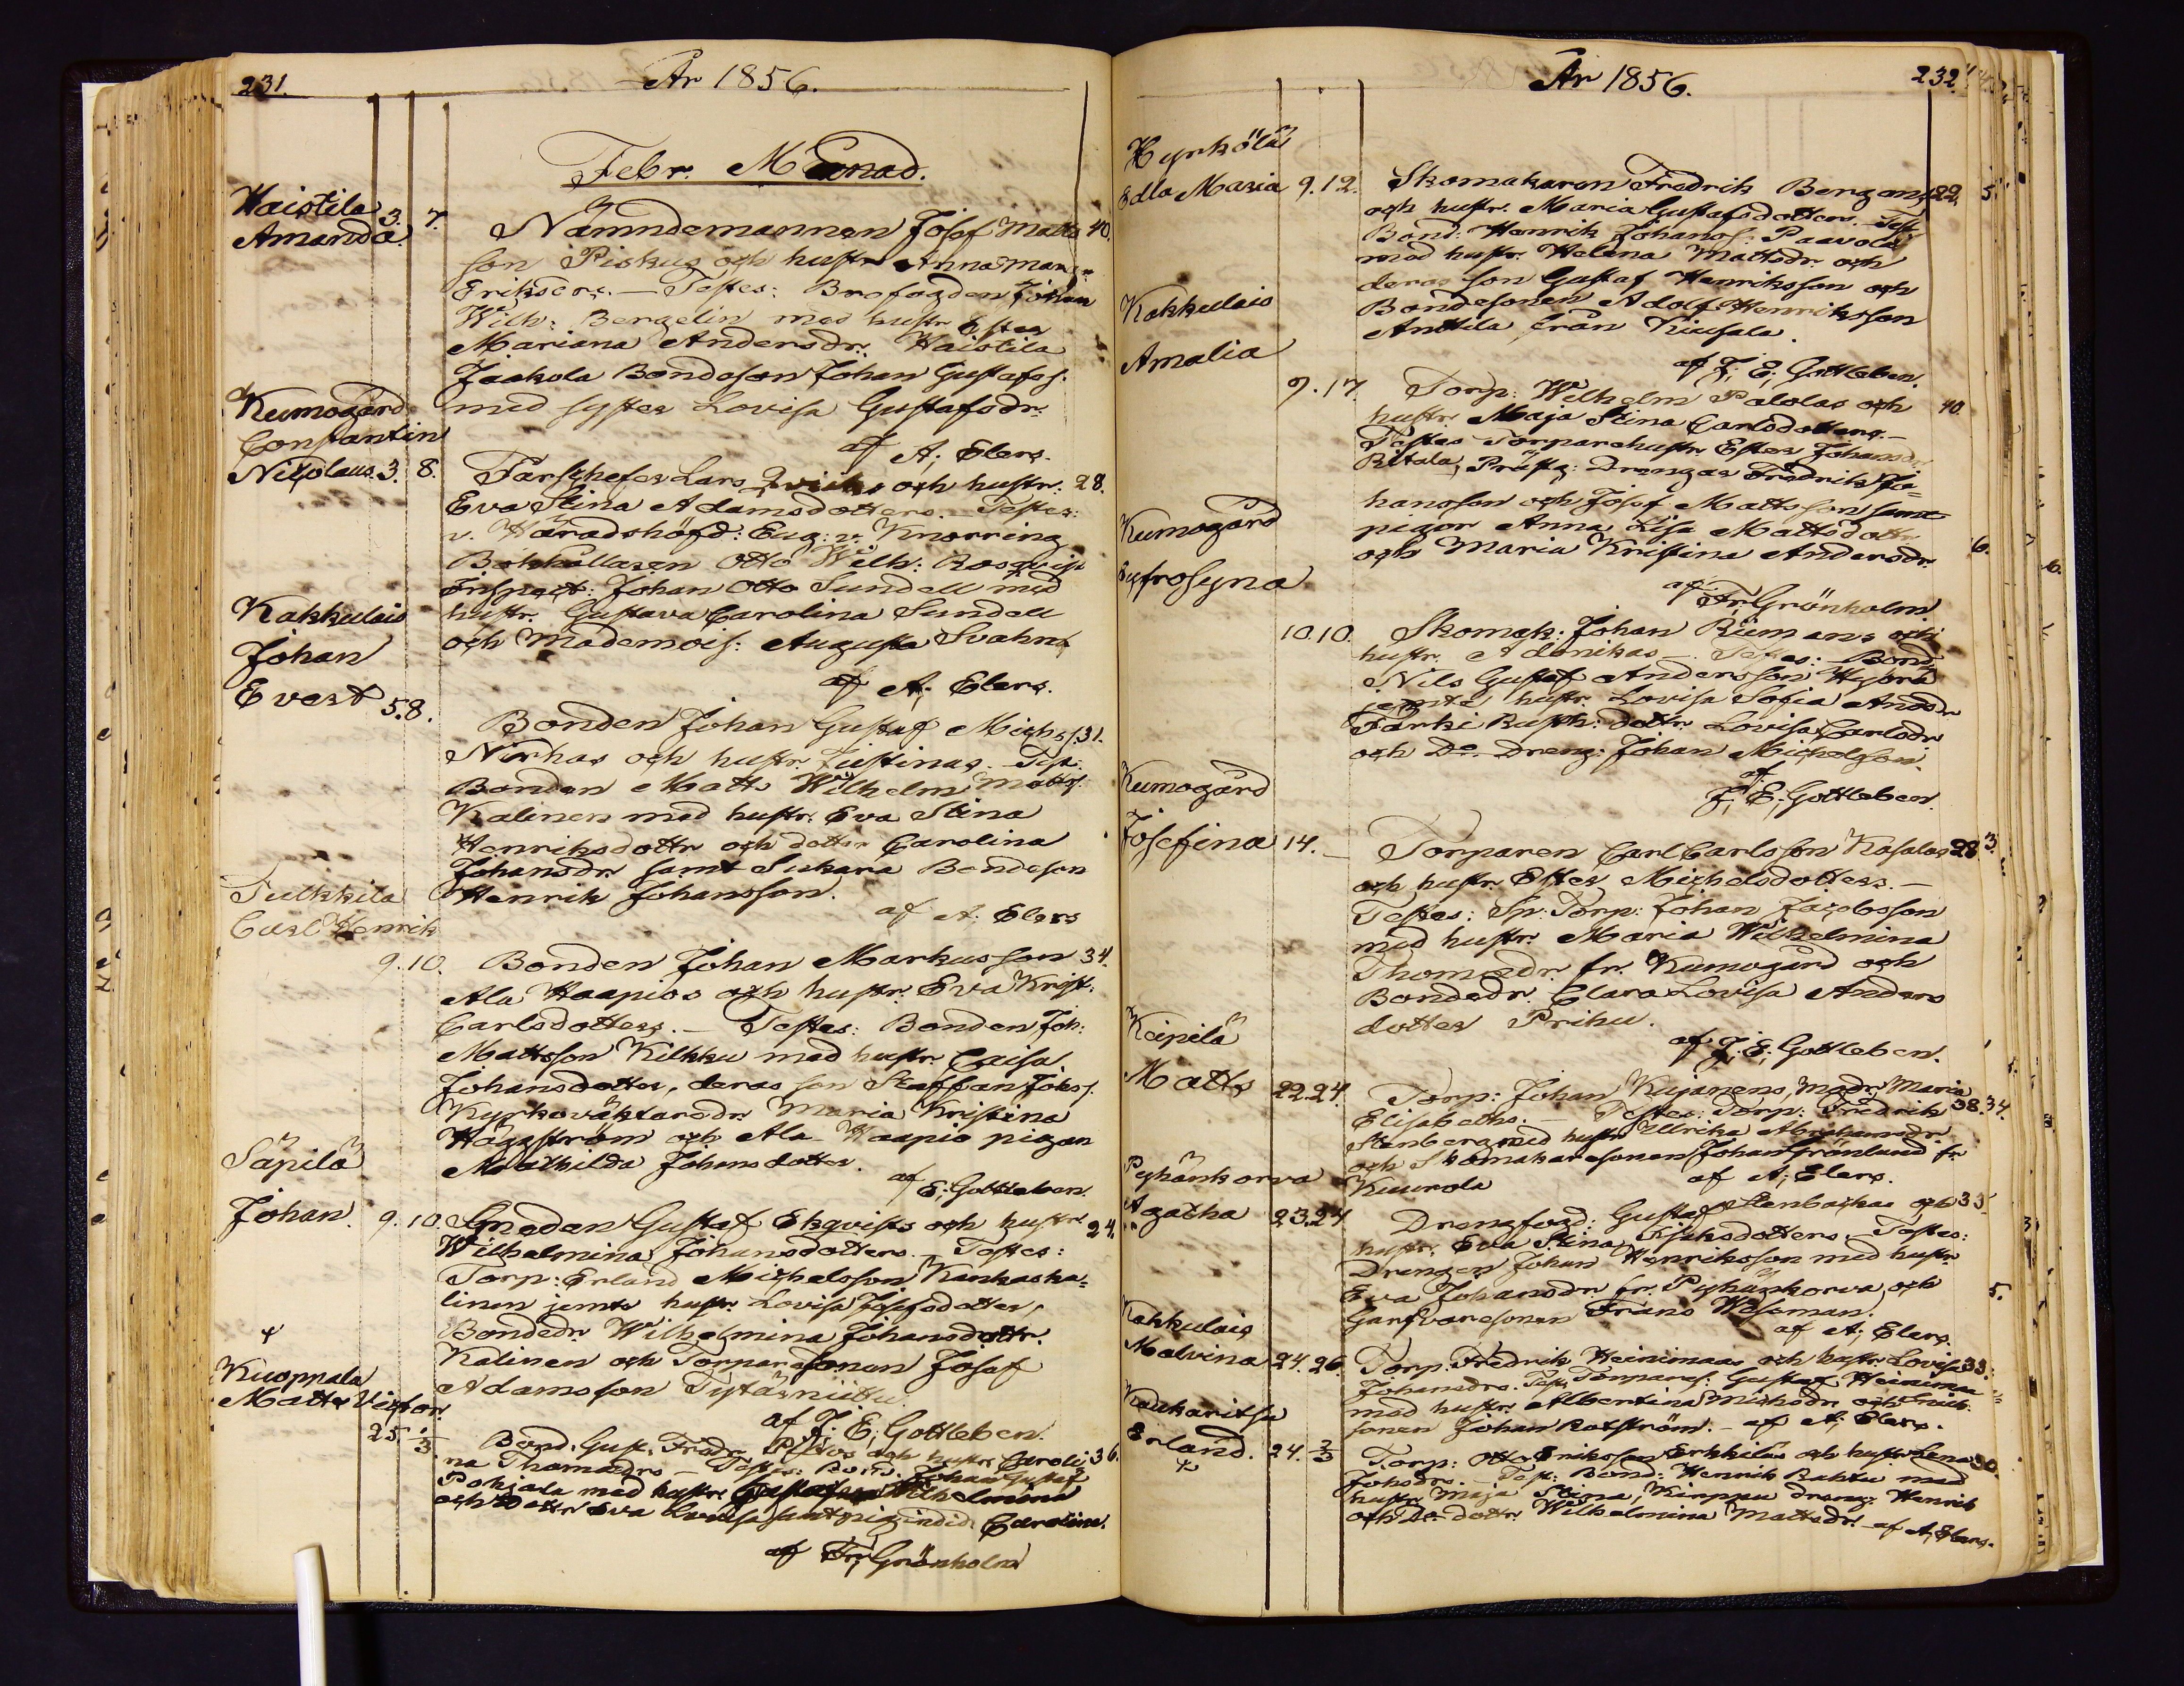 231.
År 1856.
Febr. Månad.
Haistila
Amanda. 3. 7. Nämndemannen Josef Matts 40.
son Piskus och hustr. Anna Mar.
Eriksdrs. — Testes: Brofogden Johan
Wilh: Bergelin med hustr. Ester
Mariana Andersdr. Haistila
Jaakola Bondeson Johan Gustafs.
med syster Lovisa Gustafsdr.
af A; Elers.
Kumogård
Constantin
Nikolaus 3. 8. Färschefer Lars Qvicks och hustr. 28.
Eva Stina Adamsdotters. Testes:
v. Häradshöfd: Eug: v. Knorring
Bokhållaren Otto Wilh: Rosqvist
Inspect: Johan Otto Sundell med
hustr. Gustava Carolina Sundell
och Mademois: Augusta Svahn
af A; Elers.
Kakkulais
Johan
Evert 5. 8. Bonden Johan Gustaf Michs. 31.
Nirhas och hustr. Justinas. Test:
Bonden Matts Wilhelm Matts.
Kalinen med hustr. Eva Stina
Henriksdottr och dotter Carolina
Johansdr samt Sukara Bondeson
Henrik Johansson.
af A; Elers
Tulkkila
Carl Henrik
9. 10. Bonden Johan Markusson 34.
Ala Haapios och hustr. Eva Krist.
Carlsdotters. — Testes: Bonden Joh:
Mattsson Kilkku med hustr. Caisa
Johansdotter, deras son Staffan Johss.
Kyrkovaktaredr Maria Kristina
Häggström och Ala Haapio pigan
Mathilda Johansdotter.
af E; Gottleben.
Säpilä
Johan. 9. 10. Smeden Gustaf Ekqvists och hustr. 24.
Wilhelmina Johansdotters. — Testes:
Torp: Erland Michelsson Kankaska=
linen jemte hustr. Lovisa Josefsdotter,
Bondedr Wilhelmina Johansdottr.
Kalinen och Torparesonen Josef
Adamsson Tytärniittu.
af J; E; Gottleben.
Kuoppala
Matts Victor.
25. 1/3 Bond. Gust. Fredr. och hustr. Caroli= 36.
na Thomasdrs — Testes: Bond. Johan Gustaf
Pohjala med hustr. Wilhelmina
och dottr Eva Lovisa samt pig. indid. Carolina.
af Fr; Grönholm
År 1856.
232.
Hyrkölä
Edla Maria 9. 12. Skomakaren Fredrik Bergens 22.
och hustr. Maria Gustafsdotters. Test
Bond: Henrik Johanss: Paavola
med hustr. Helena Mattsdr. och
deras son Gustaf Henriksson och
Bondesonen Adolf Henriksson
Anttila, från Kiusala.
af J; E; Gottleben.
Kakkulais
Amalia
9. 17 Torp: Wilhelm Palolas och 40.
hustr. Maja Stina Carlsdotters. —
Testes Torparehustr. Ester Johansdr
Ritala, Prästg: Drengar Fredrik Jo=
hansson och Josef Mattsson samt
pigor Anna Lisa Mattsdottr
och Maria Kristina Andersdr.
af Fr; Grönholm
Kumogård
Eufrosyna
10. 10. Skomak: Johan Riimans och
hustr. Adonikas —. Testes: Bond.
Nils Gustaf Andersson Hyorä
jemte hustr. Lovisa Sofia Andsdr
Färki Rusth: dottr. Lovisa Carlsdr
och Do. Dreng: Johan Michelsson.
af J; E; Gottleben.
Kumogård
Josefina 14. — Torparen Carl Carlsson Kasalas 28
och hustr. Ester Michelsdotters. —
Testes: Sp: Torp: Johan Jacobsson
med hustr. Maria Wilhelmina
Thomasdr. fr. Kumogård och
Bondedr. Clara Lovisa Anders
dotter Prihu.
af J; E; Gottleben.
Keipilä
Matts 22. 24. Torp: Johan Kujanens, Modr: Maria
Elisabeths. — Testes: Torp: Fredrik 38. 34.
Stenberg med hustr. Ullrika Abrahamsdr.
och Skomakaresonen Johan Grönlund fr.
Kuurola af A; Elers.
Pyhänkorva
Agatha 23. 24 Drengfogd: Gustaf Stenbackas och 33
hustr. Eva Stina Isaksdotters. — Testes:
Drengen Johan Henriksson med hustr
Eva Johansdr fr. Pyhänkorva och
Garfvaresonen Frans Wessman.
af A; Elers.
Kakkulais
Malvina 24. 26. Torp. Fredrik Heinimaas och hustr. Lovisa 33.
Johansdrs. Test, Torpares: Gustaf Heinimaa
med hustr. Albertina Michsdr och
sonen Johan Rotström. — af A; Elers.
Kaukaritsa
Erland. 24. 2/3 Torp: Otto Eriksson Erkkiläs och hustr. Lena 30.
Johsdrs. — Test: Bond: Henrik Rahtu med
hustr. Maja Stina, Kinppu dreng: Henrik
och Do. dottr. Wilhelmina Mattsdr. af A; Elers.